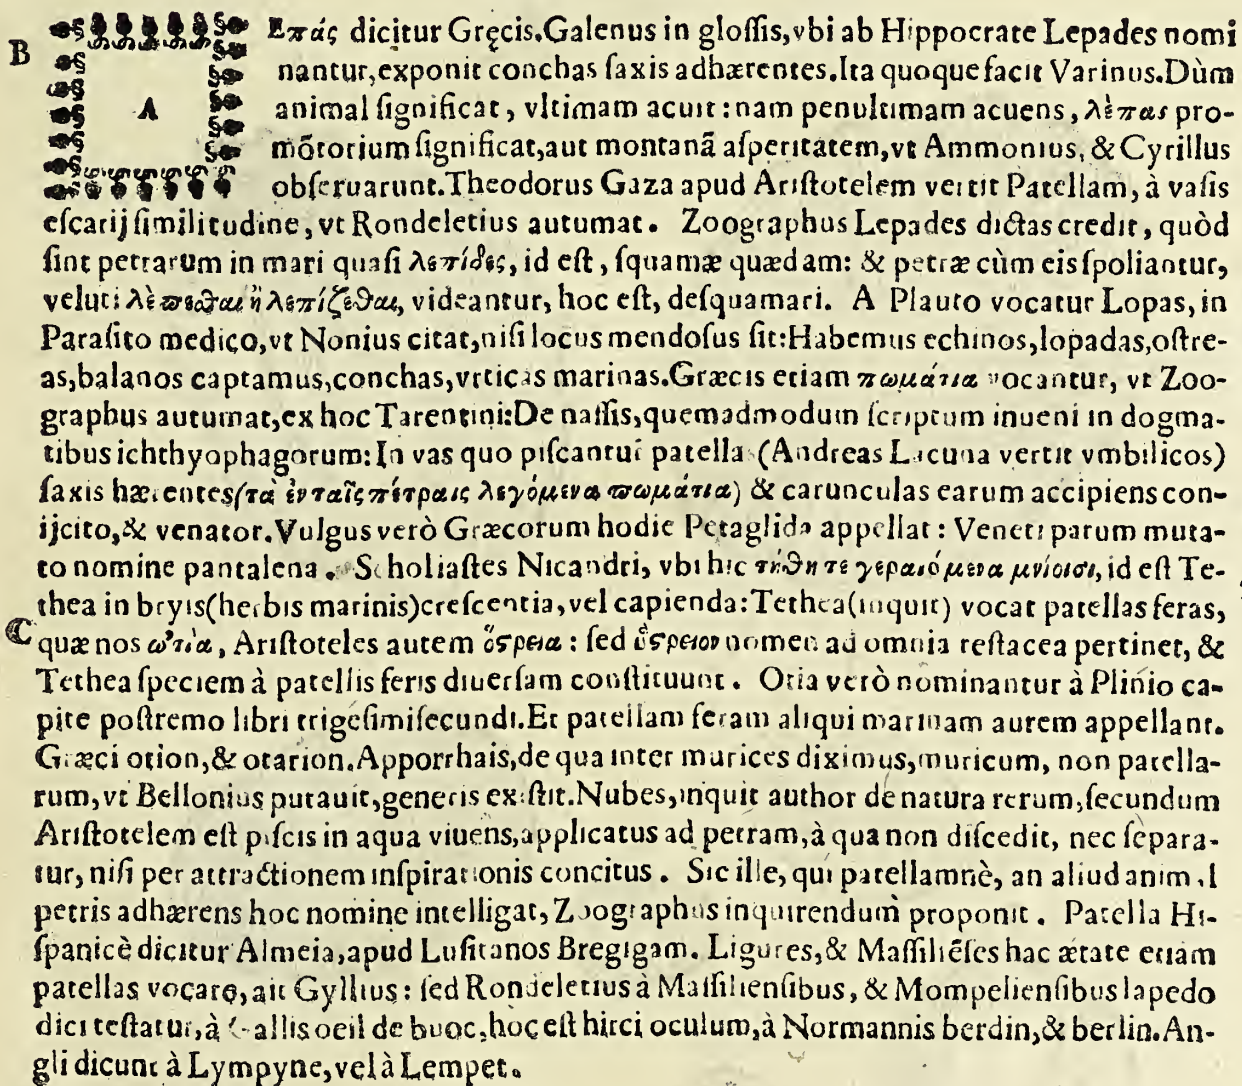 B
A
Επάς dicitur Gręcis.Galenus in gloſſis,vbi ab Hippocrate Lepades nomi
nantur,exponit conchas ſaxis adhærentes.Ita quoque facit Varinus.Dùm
animal ſignificat, vltimam acuit: nam penultimam acuens, λέπας pro-
mõtorium ſignificat,aut montanã aſperitatem,vt Ammonius, & Cyrillus
obſeruarunt.Theodorus Gaza apud Ariſtotelem vertit Patellam, à vaſis
eſcarij ſimilitudine, vt Rondeletius autumat. Zoographus Lepades dictas credit, quòd
ſint petrarum in mari quaſi λεπίδες, id eſt, ſquamæ quædam: & petræ cùm eis ſpoliantur,
veluti λέπεσθαι ἢ λεπίζεσθαι, videantur, hoc eſt, deſquamari. A Plauto vocatur Lopas, in
Paraſito medico,vt Nonius citat,niſi locus mendoſus ſit:Habemus echinos,lopadas,oſtre-
as,balanos captamus,conchas,vrticas marinas.Græcis etiam πωμάτια vocantur, vt Zoo-
graphus autumat,ex hoc Tarentini:De naſſis,quemadmodum ſcriptum inueni in dogma-
tibus ichthyophagorum:In vas quo piſcantur patella (Andreas Lacuna vertit vmbilicos)
ſaxis hærentes(τὰ ἐν ταῖς πέτραις λεγόμενα πωμάτια) & carunculas earum accipiens con-
ijcito,& venator.Vulgus verò Græcorum hodie Petaglida appellat: Veneti parum muta-
to nomine pantalena. Scholiaſtes Nicandri, vbi hic τήθη τε γεραιόμενα μνίοισι, id eſt Te-
thea in bryis(herbis marinis)creſcentia,vel capienda:Tethea(inquit) vocat patellas feras,
C
quæ nos ὠτία, Ariſtoteles autem ὄστρεια: ſed ὄστρειον nomen ad omnia teſtacea pertinet, &
Tethea ſpeciem à patellis feris diuerſam conſtituunt. Otia verò nominantur à Plinio ca-
pite poſtremo libri trigeſimiſecundi.Et patellam feram aliqui marinam aurem appellant.
Græci otion,& otarion.Apporrhais,de qua inter murices diximus,muricum, non patella-
rum,vt Bellonius putauit,generis exiſtit.Nubes,inquit author de natura rerum,ſecundum
Ariſtotelem eſt piſcis in aqua viuens,applicatus ad petram,à qua non diſcedit, nec ſepara-
tur, niſi per attractionem inſpirationis concitus. Sic ille, qui patellamnè, an aliud animal
petris adhærens hoc nomine intelligat, Zoographus inquirendum proponit. Patella Hi-
ſpanicè dicitur Almeia,apud Luſitanos Bregigam. Ligures,& Maſſiliẽſes hac ætate etiam
patellas vocare, ait Gyllius: ſed Rondeletius à Maſſilienſibus, & Mompelienſibus lapedo
dici teſtatur,à Gallis oeil de buoc,hoc eſt hirci oculum,à Normannis berdin,& berlin.An-
gli dicunt à Lympyne,vel à Lempet.